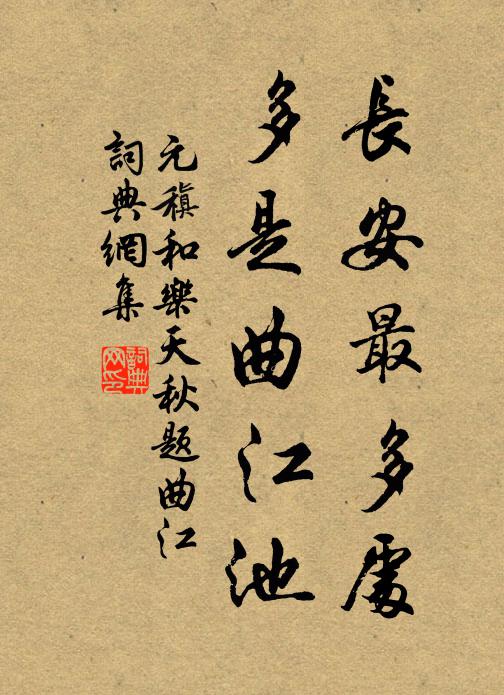 長安最多處
多是曲江池
元稹和樂天秋題曲江
詞典網集
詞典网印